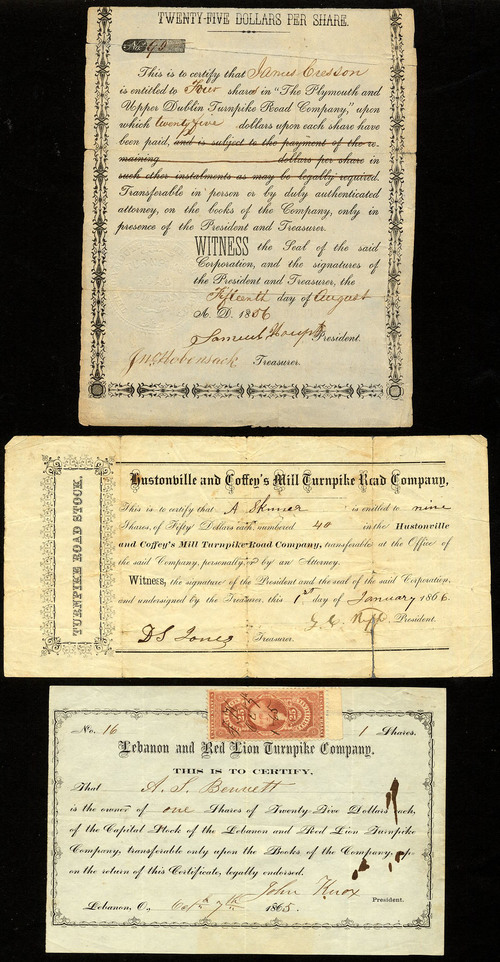 TWENTY-FIVE DOLLARS PER SHARE.
No. 92
This is to certify that James Cresson
is entitled to Four shares in "The Plymouth and
Upper Dublin Turnpike Road Company," upon
which twenty five dollars upon each share have
been paid, and is subject to the payment of the re-
maining dollars per share in
such other instalments as may be legally required.
Transferable in person or by duly authenticated
attorney, on the books of the Company, only in
presence of the President and Treasurer.
WITNESS the Seal of the said
Corporation, and the signatures of
the President and Treasurer, the
Fifteenth day of August
A. D. 1856
Samuel President.
Treasurer.
TURNPIKE ROAD STOCK.
Hustonville and Coffey's Mill Turnpike Road Company,
This is to certify that A Skinner is entitled to nine
Shares, of Fifty Dollars each, numbered 40 in the Hustonville
and Coffey's Mill Turnpike Road Company, transferable at the Office of
the said Company, personally or by an Attorney.
Witness, the signature of the President and the seal of the said Corporation,
and undersigned by the Treasurer, this 1st day of January 1866.
President.
D S Jones Treasurer.
No. 16 1 Shares.
Lebanon and Red Lion Turnpike Company.
THIS IS TO CERTIFY,
That A. S. Bennett
is the owner of one Shares of Twenty-Five Dollars each,
of the Capital Stock of the Lebanon and Red Lion Turnpike
Company, transferable only upon the Books of the Company, up-
on the return of this Certificate, legally endorsed.
John Knox President.
Lebanon, O., 7th 1865.